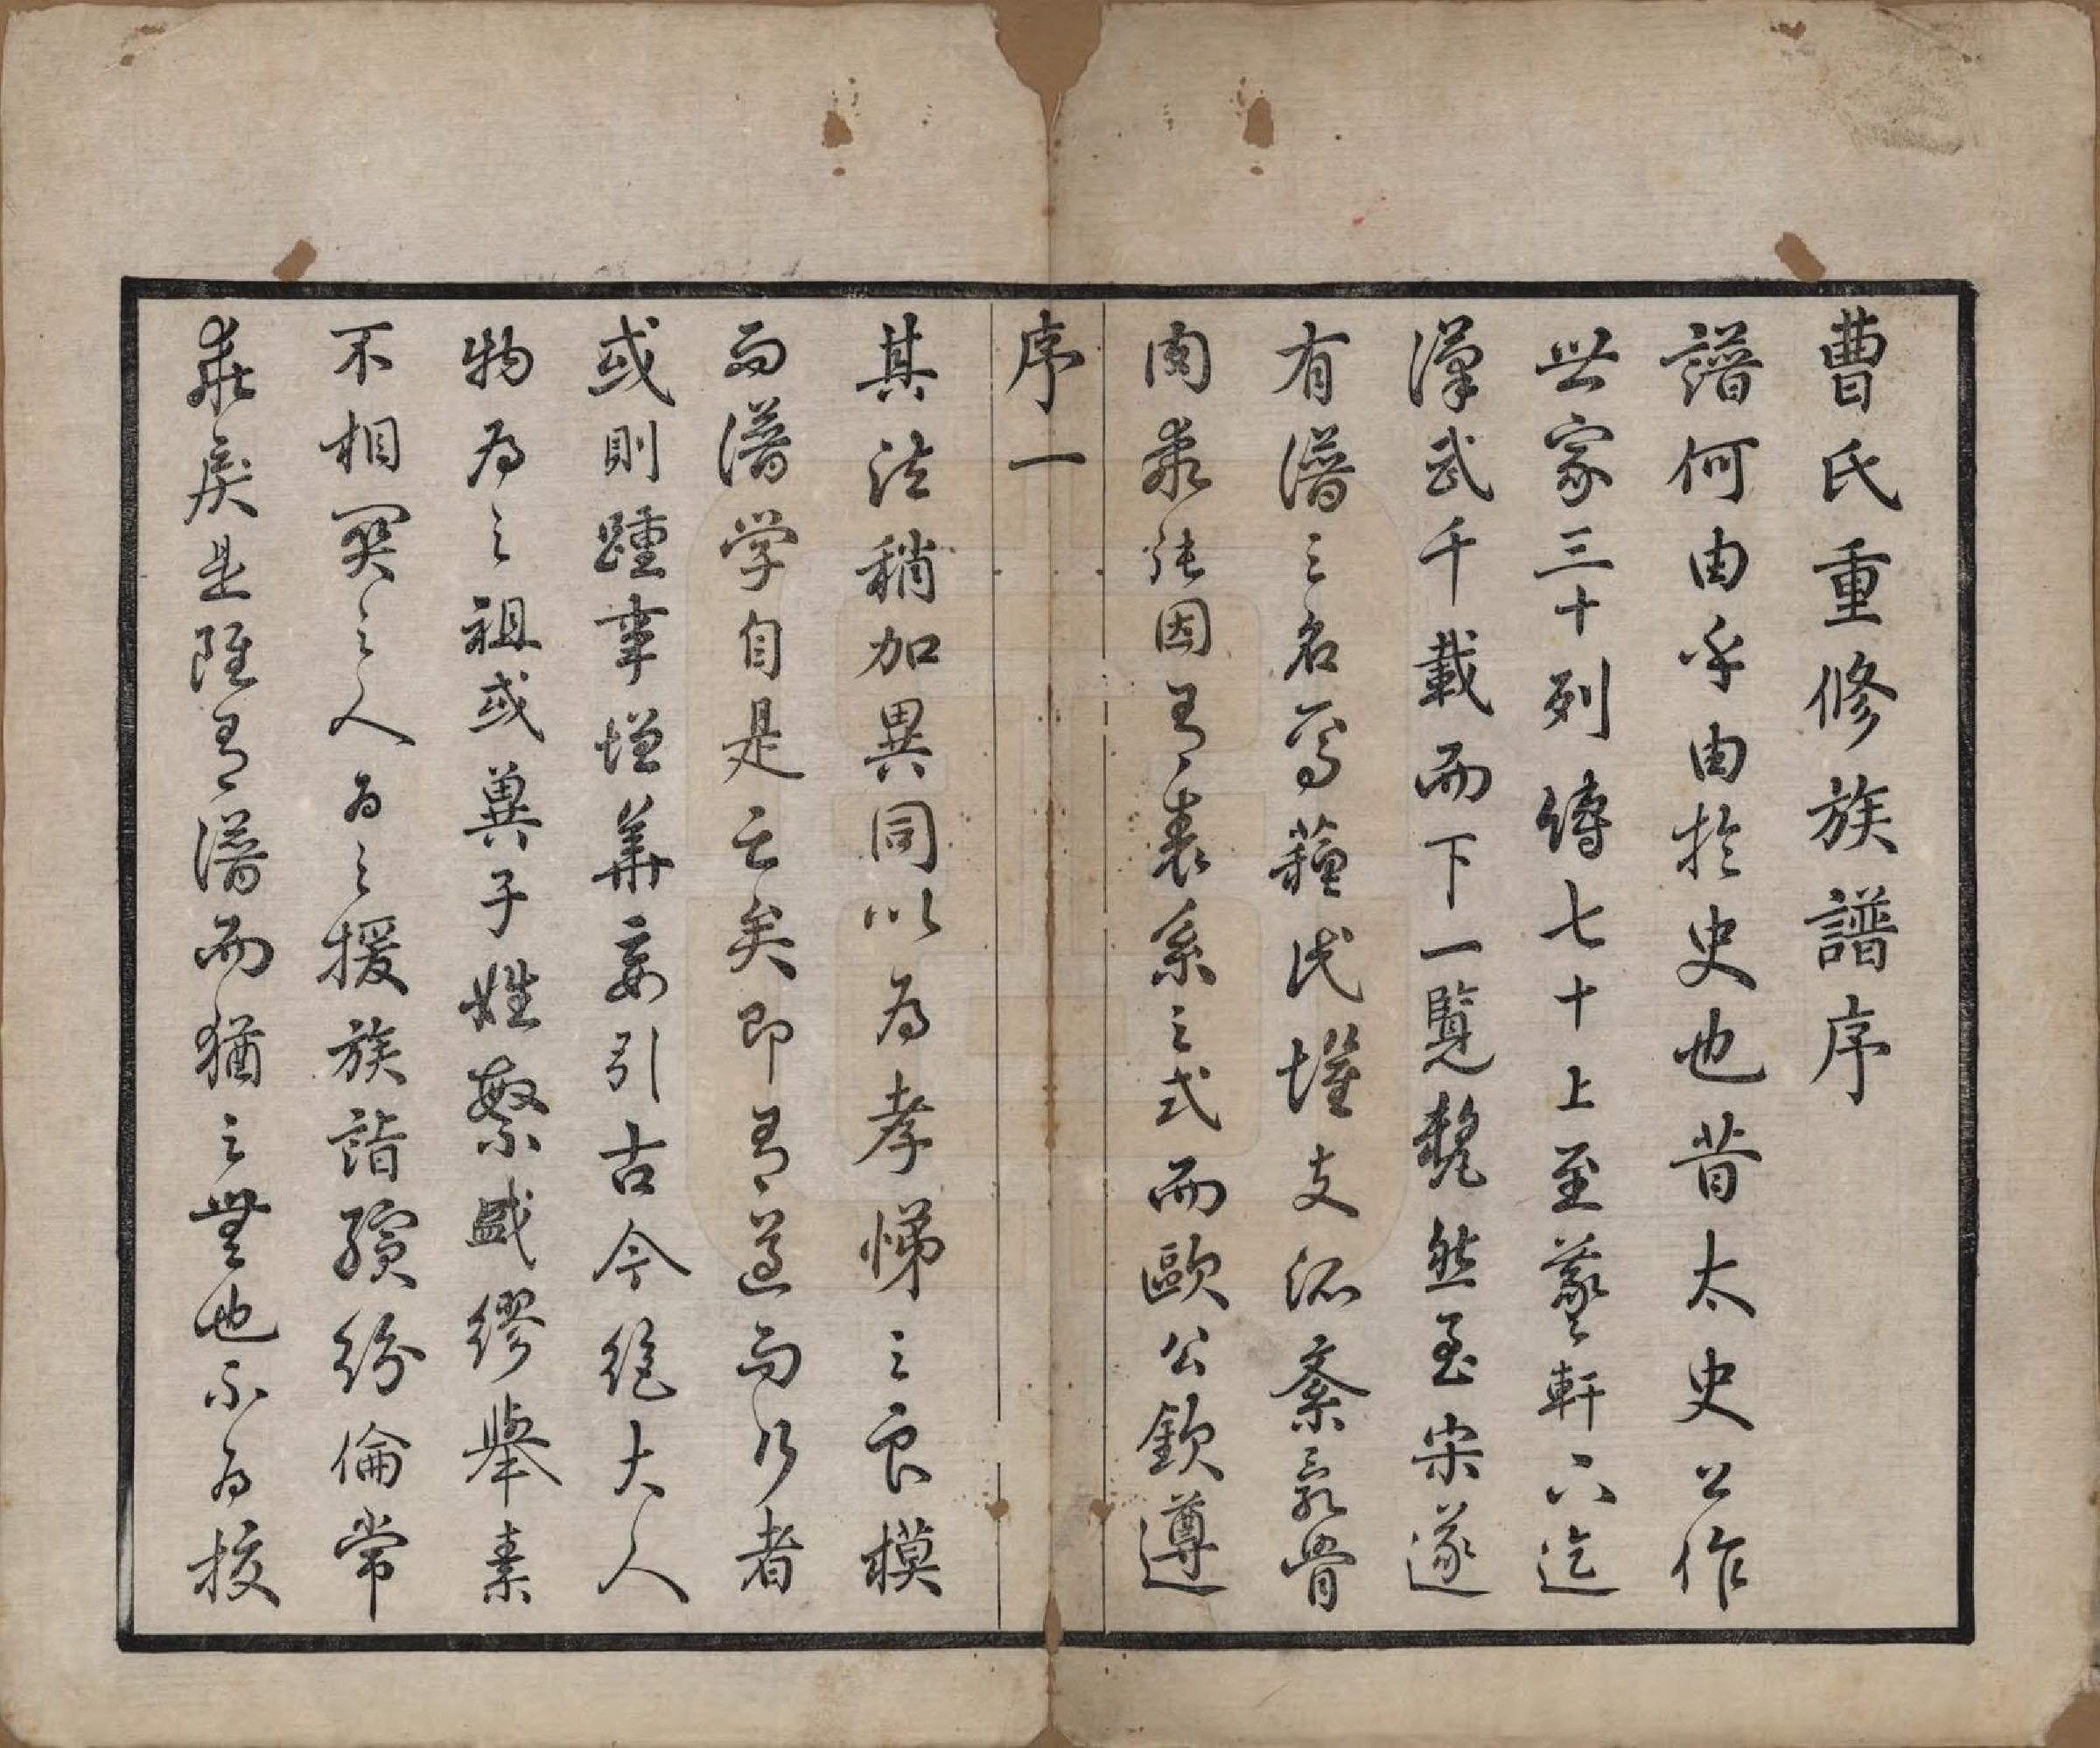 曹氏重修族譜序
譜何由乎由於史也昔太史公作
世家三十列傳七十上至羲軒下迄
漢武千載而下一覽犂然至宋遂
有譜之名焉蘓氏懼支派紊亂骨
肉乖張因有表系之式而歐公欽遵
序一
其法稍加異同以為孝悌之良模
而譜学自是亡矣即有遵而行者
或則踵事增華妄引古今絕大人
物為之祖或冀子姓繁盛繆舉素
不相関之人为之援族諧繽紛倫常
乖戾是雖有譜而猶之無也不为校